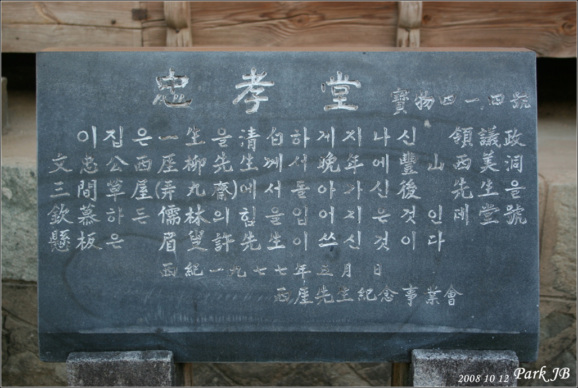 忠孝堂 寶物四一四號
이집은一生을淸白하게지나신 領議政
文忠公西厓柳先生께서晩年에豐山 西美洞
三間草屋(弄丸齋)에서돌아가신後先生을
欽慕하든 儒林의힘을입어지은것인데堂號
懸板은 眉叟許先生이쓰신것이다
西紀一九七七年五月 日
西厓先生紀念事業會
2008 10 12 Park JB